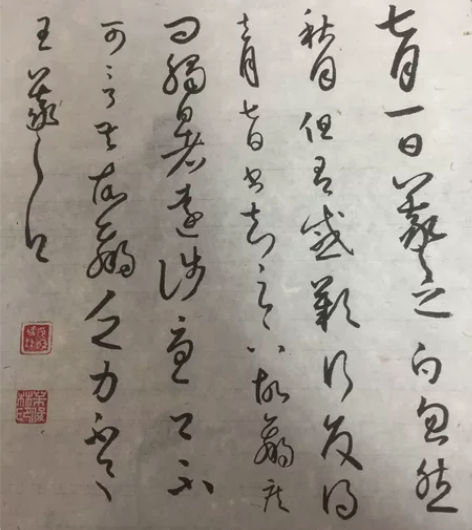 七月一日羲之白忽然
秋月但有感歎信反得
去月七日書知足下故羸疾
問觸暑遠涉憂卿不
可言吾故羸乏力不具
王羲之白